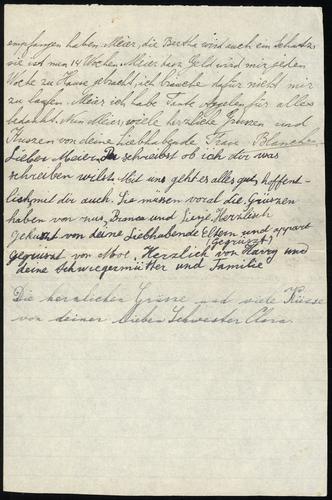 empfangen haben Meier, die Bertha wird auch ein Schatz,
sie ist nun 14 Wochen. Meier das Geld wird mir jeden
Woche zu Hause gebracht, ich brauche dafür nicht mir
zu laufen. Meier ich habe Tante für alles
bedankt. Nun Meier, viele herzliche Grüssen und
Küssen von deine Liebhabende Frau Blanche
Lieber Meier Du schreibst ob ich dir was
schreiben wilst. Mit uns geht es alles gut, hoffent-
lich mit dir auch. Sie müssen vord die Gruszen
haben von uns, und Herzlisch
gekust von deine Liebhabende Eltern und appart
(Gegruszt)
gegruszt von Moe. Herzlich von Harry und
deine Schwiegermütter und Familie
Die herzlichen Grüsse und viele Küsse
von deiner lieben Schwester Clara.